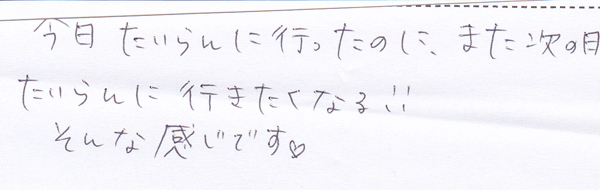 今日 たいらんに行ったのに、また次の日
たいらんに 行きたくなる!!
そんな感じです♡